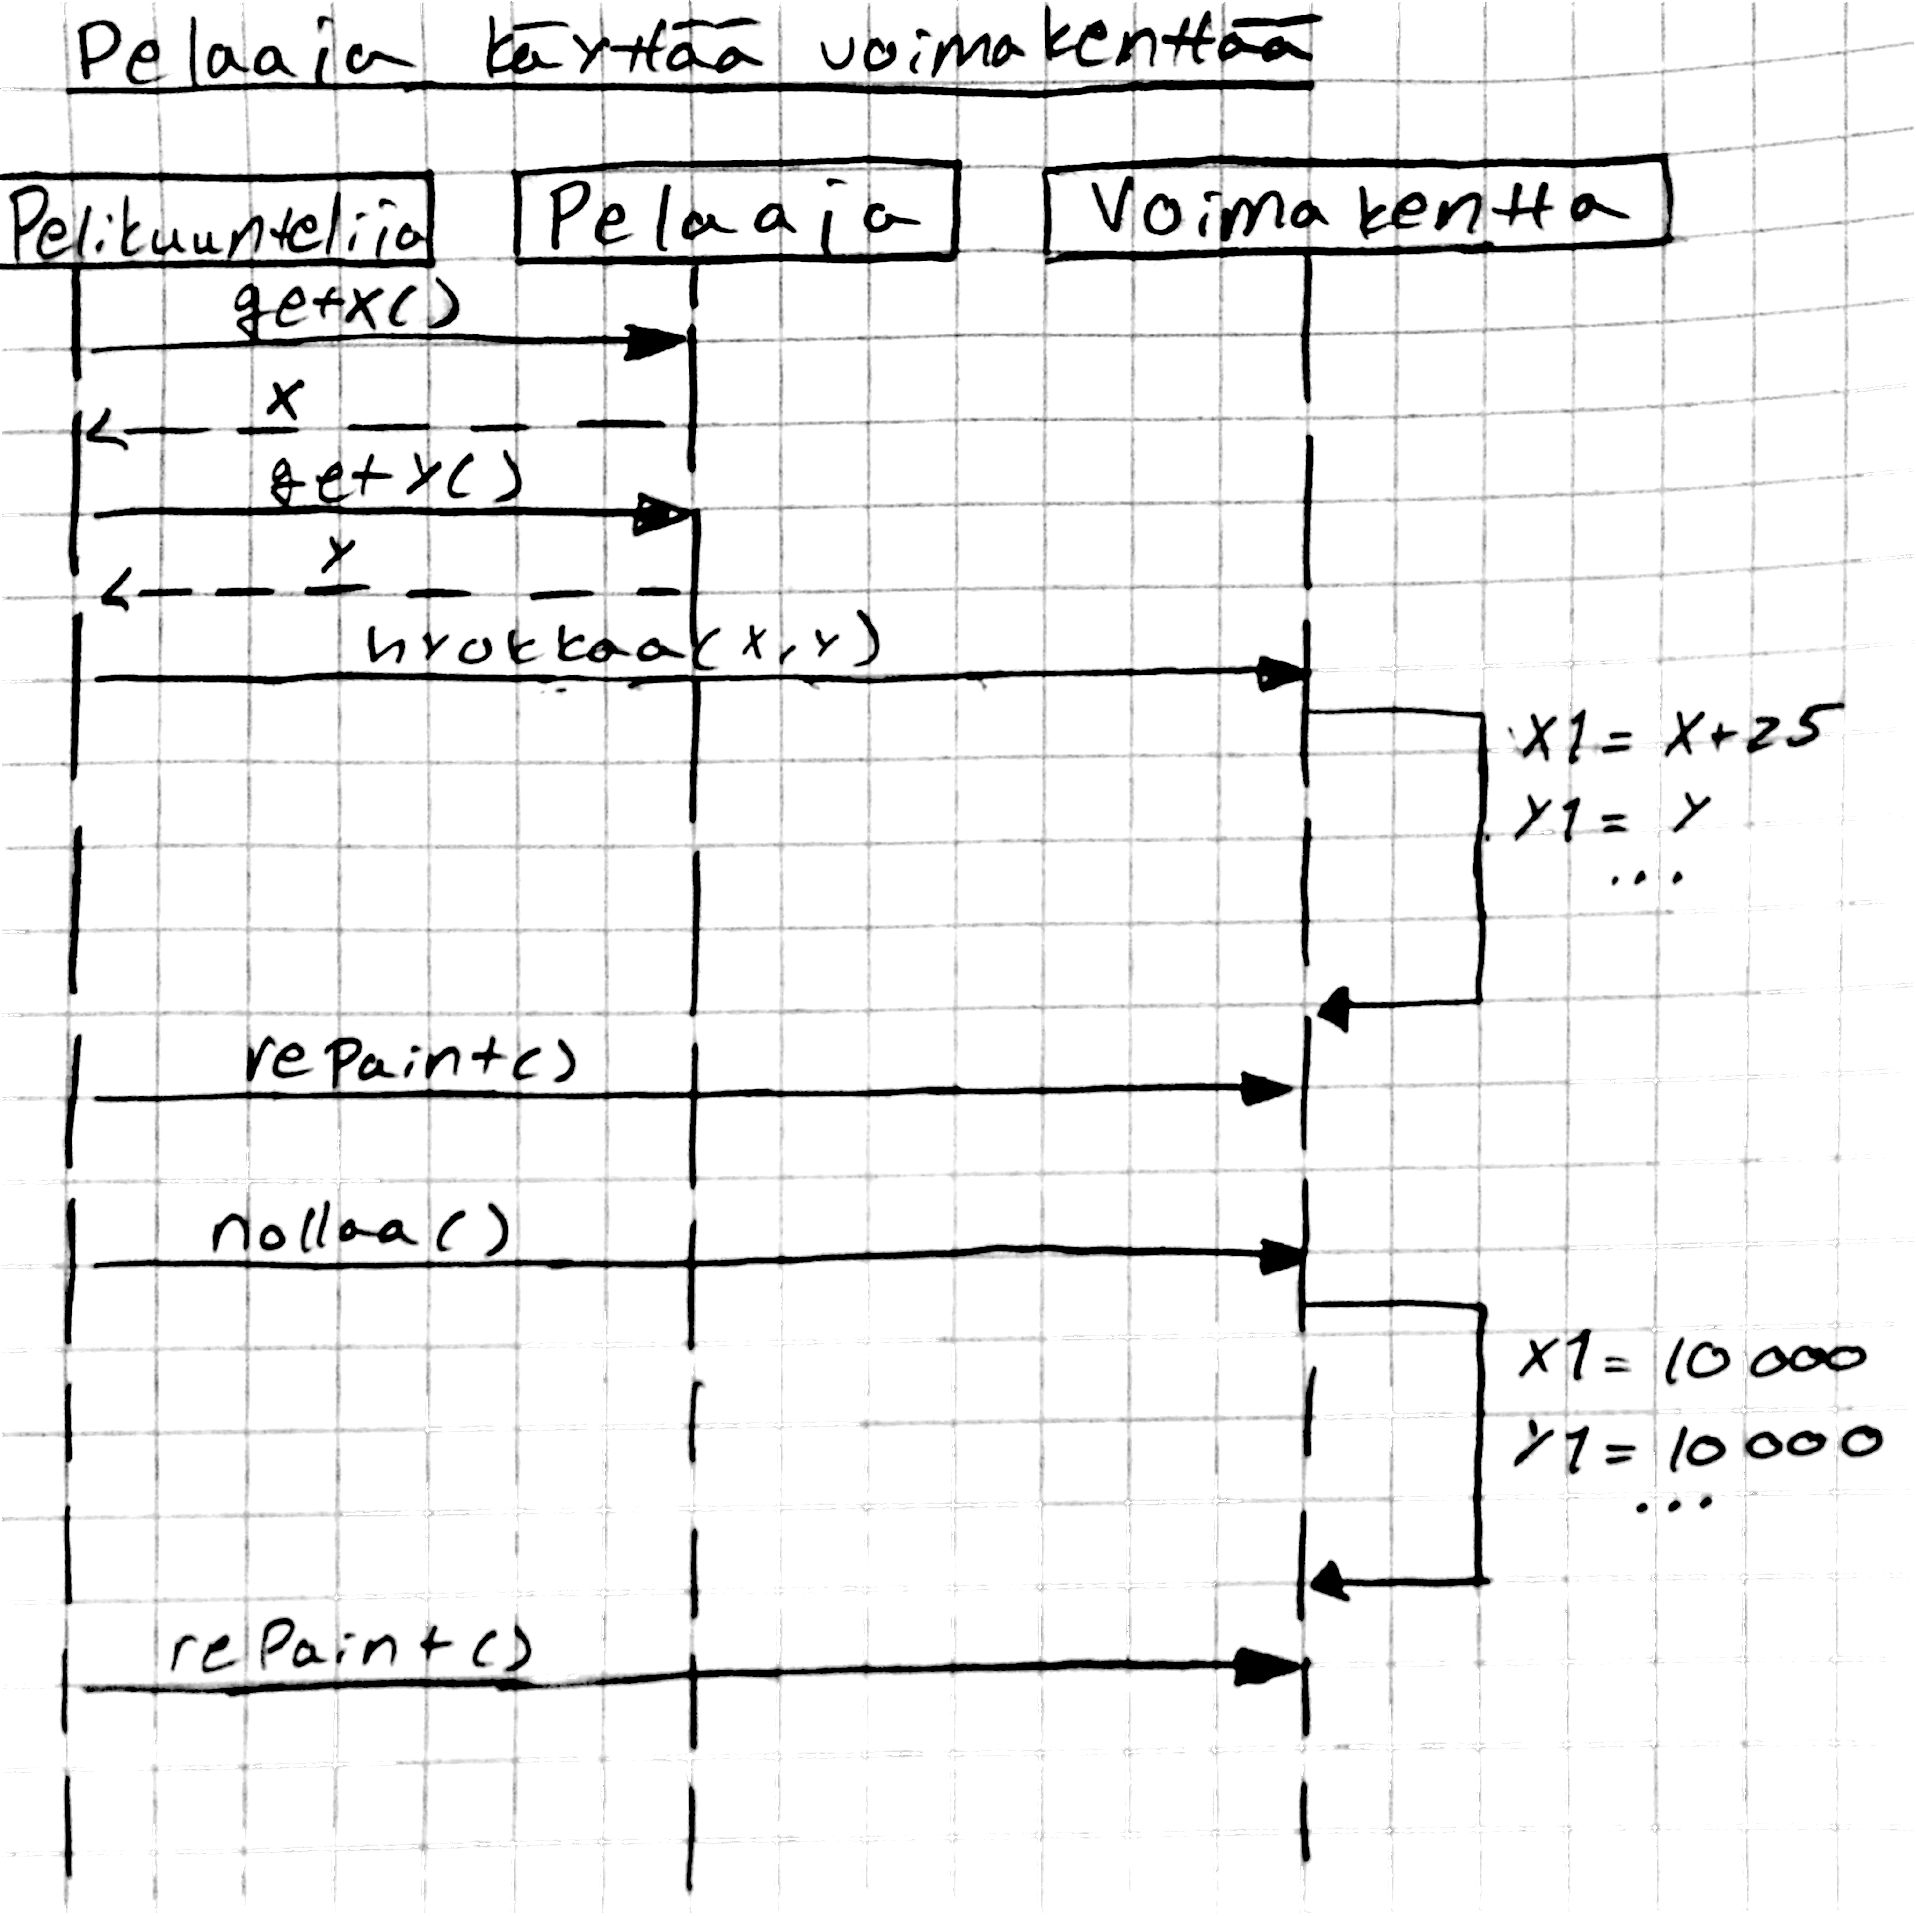 Pelaaja käyttää voimakenttää
Pelikuuntelija Pelaaja Voimakentta
getX()
X
getY()
Y
hyokkaa(X,Y)
X1= X+25
Y1= Y
...
rePaint()
nollaa()
X1= 10 000
Y1= 10 000
...
rePaint()